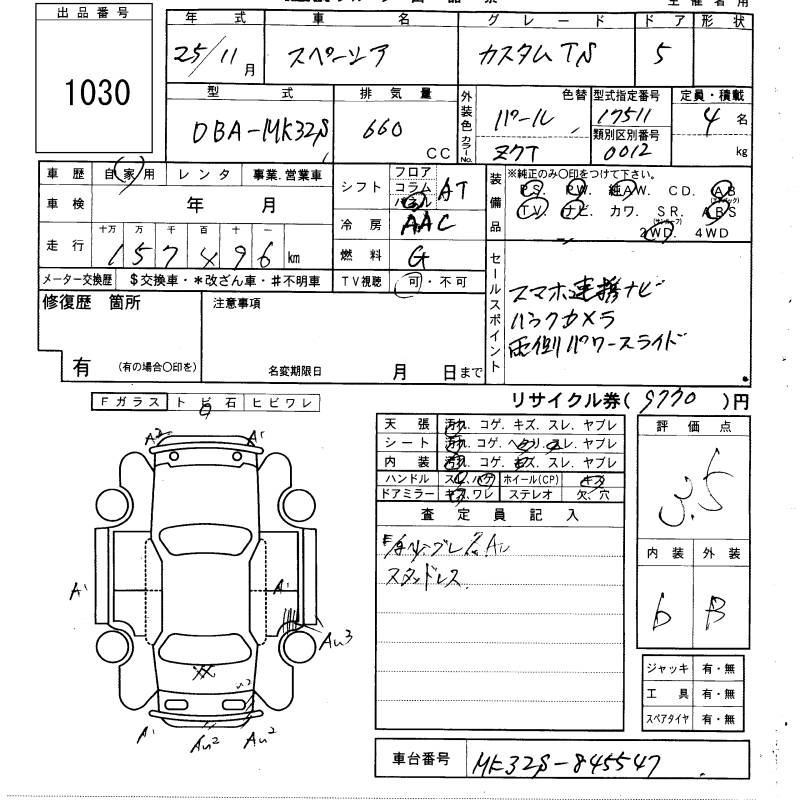 出品番号
1030
年式 車名 グレード ドア 形状
25/11月 スペーシア カスタムTS 5
型式 排気量 外装色 色替 型式指定番号 定員・積載
DBA-MK32S 660 CC パール カラーNo. ZQT 17511 4名
類別区別番号
0012 kg
車歴 自家用 レンタ 事業.営業車
車検 年 月
走行 十万 万 千 百 十 一
157496 km
メーター交換歴 $交換車・*改ざん車・#不明車
シフト フロア コラム パネル AT
冷房 AAC
燃料 G
TV視聴 可・不可
装備品 ※純正のみ〇印をつけて下さい。
PS. PW. 純AW. CD. AB
(エアバック)
TV. ナビ. カワ. SR. ABS
(サンルーフ)
2WD. 4WD
修復歴 箇所 注意事項
有 (有の場合〇印を) 名変期限日 月 日まで
セールスポイント
スマホ連携ナビ
バックカメラ
両側パワースライド
リサイクル券( 9770 )円
Fガラス トビ石 ヒビワレ
天張 汚れ. コゲ. キズ. スレ. ヤブレ
シート 汚れ. コゲ. ヘタリ. スレ. ヤブレ
内装 汚れ. コゲ. キズ. スレ. ヤブレ
ハンドル スレ.ハゲ ホイール(CP) キズ
ドアミラー キズ.ワレ ステレオ 欠.穴
評価点
3.5
内装 外装
6 B
査定員記入
スタッドレス
A2 A1
A1 A1
Au3
A1 Au2 Au2
ジャッキ 有・無
工具 有・無
スペアタイヤ 有・無
車台番号 MK32S-845547